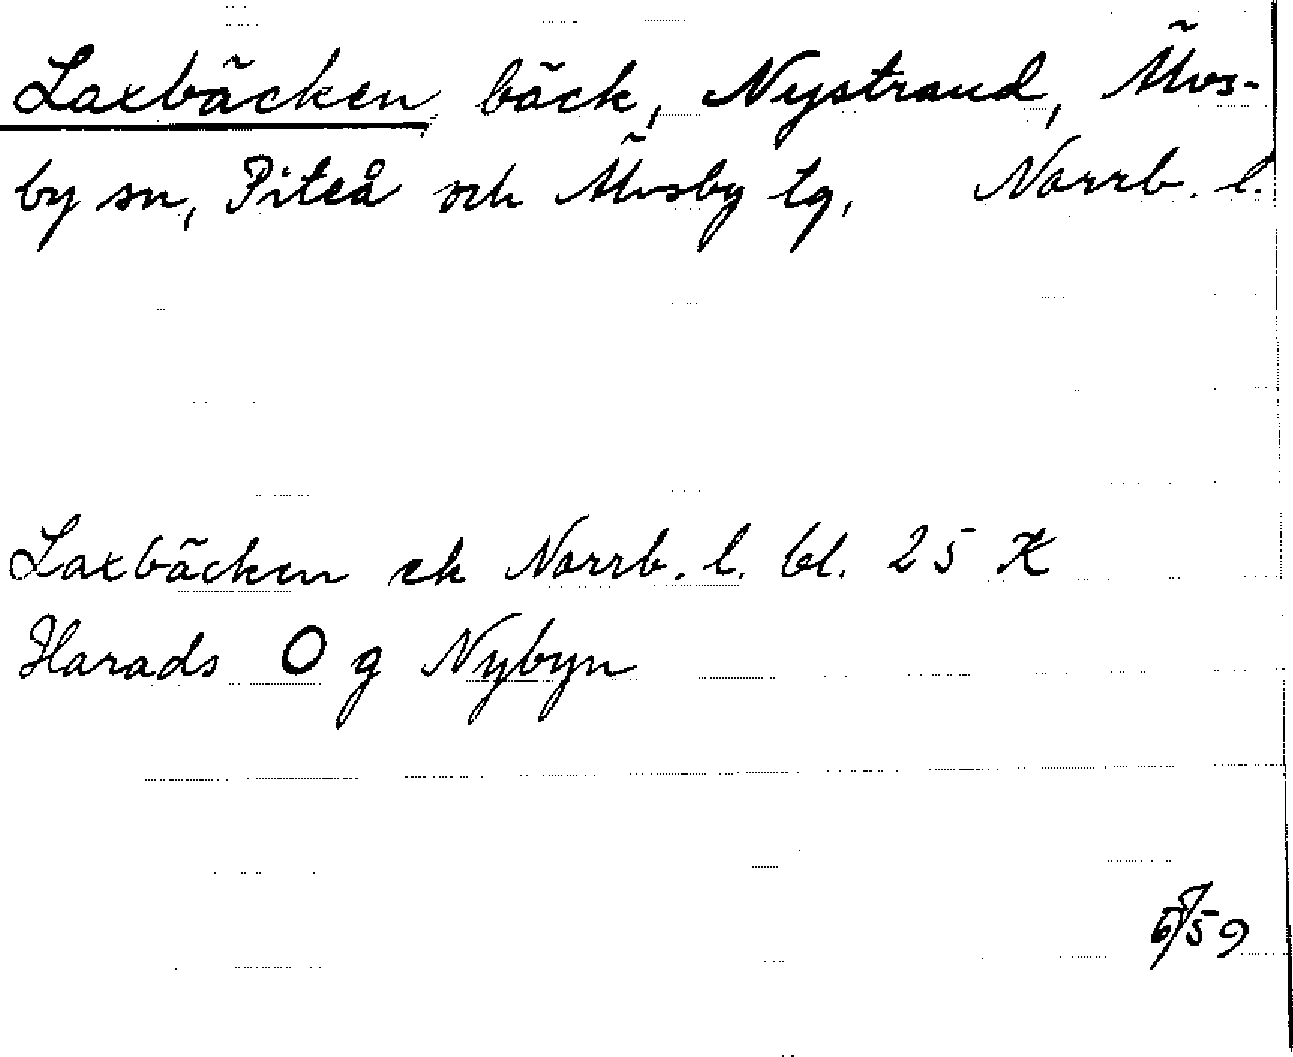 Laxbäcken, bäck, Nystrand, Älvs-
by sn, Piteå och Älvsby tg, Norrb. l.
Laxbäcken ek Norrb. l. bl. 25 K
Harads O g Nybyn
59